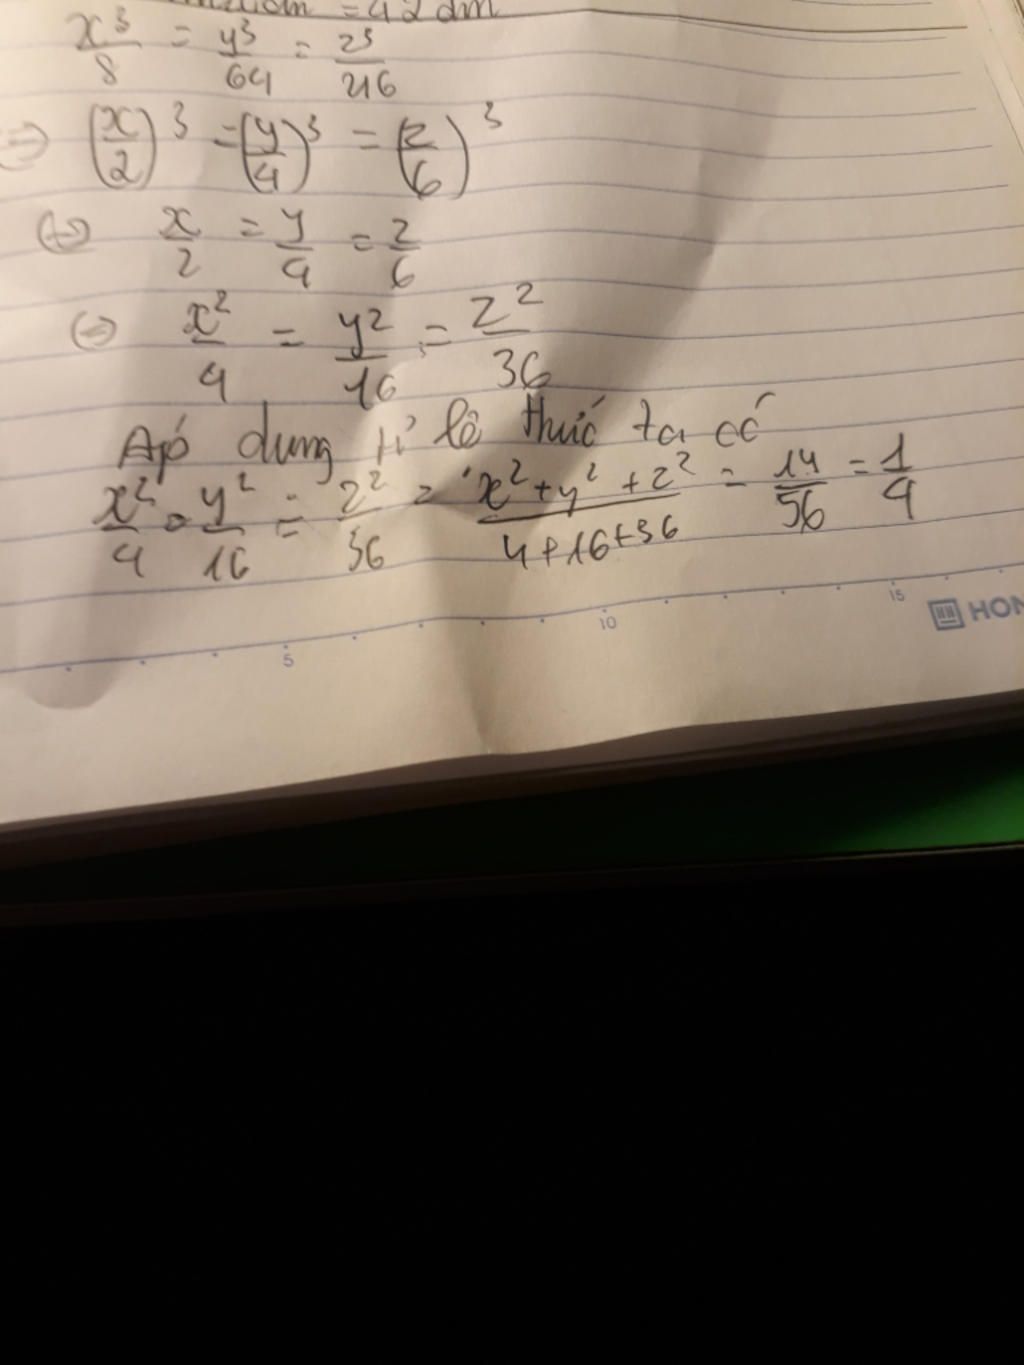 = 42 dm
x³/8 = y³/64 = z³/216
=> (x/2)³ = (y/4)³ = (z/6)³
<=> x/2 = y/4 = z/6
<=> x²/4 = y²/16 = z²/36
Áp dung tỉ lê thức ta có
x²/4 = y²/16 = z²/36 = x²+y²+z²/4+16+36 = 14/56 = 1/4
5 10 15 HON